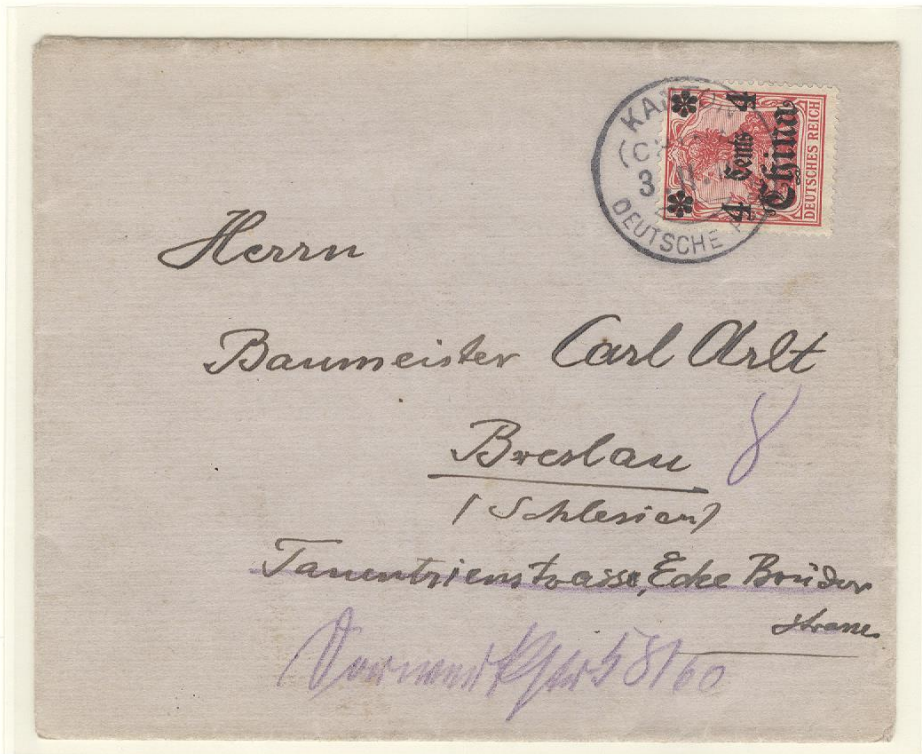 KANTON
3
DEUTSCHE
4 Cents 4
China
DEUTSCHES REICH
Herrn
Baumeister Carl Arlt
Breslau 8
(Schlesien)
Tauentzienstrasse, Ecke Brüder
strasse